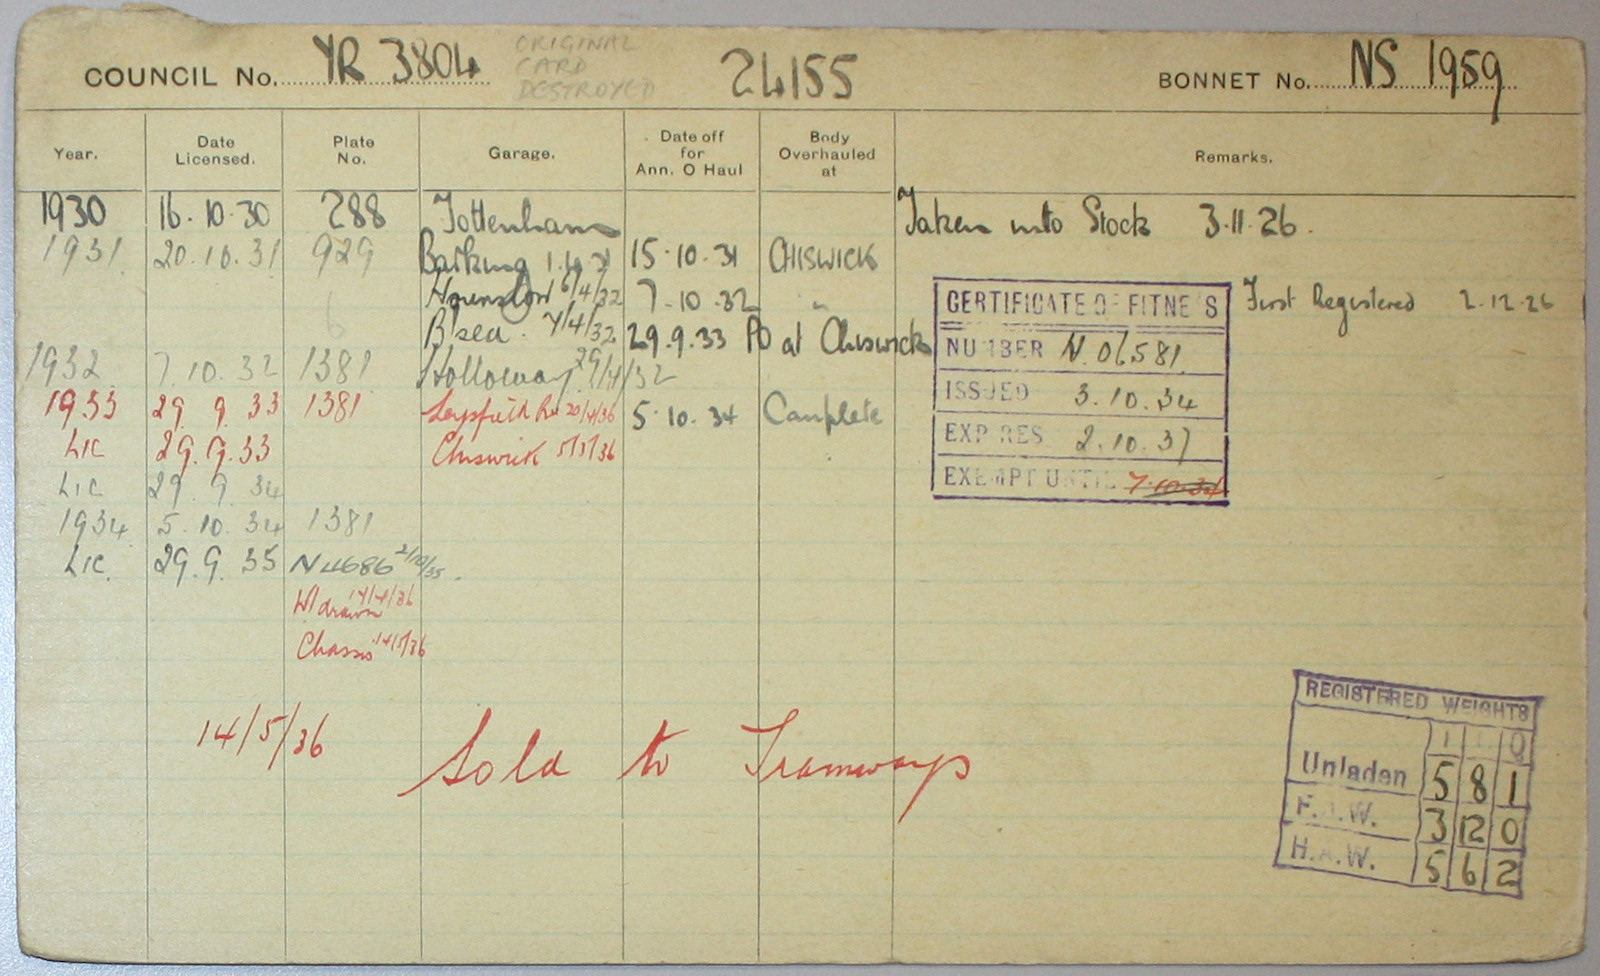 COUNCIL No. YR 3804 ORIGINAL CARD DESTROYED 24155 BONNET No. NS 1959
Year. Date Licensed. Plate No. Garage. Date off for Ann. O Haul Body Overhauled at Remarks.
1930 16.10.30 288 Tottenham Taken into Stock 3.11.26.
1931 20.10.31 929 Barking 15.10.31 CHISWICK
Hounslow 6/4/32 7.10.32 "
First Registered 2.12.26
B'sea. 7/4/32 29.9.33 PO at Chiswick
1932 7.10.32 1381 Holloway 29/4/32
1933 29 9 33 1381 Leysfield Rd 20/4/36 5.10.34 Complete
Lic 29.9.33 Chiswick 5/5/36
Lic 29 9 34
1934 5.10.34 1381
Lic. 29.9.35 N4686 2/10/35.
W/drawn 17/4/36
Chassis 14/5/36
14/5/36 Sold to Tramways
CERTIFICATE OF FITNESS
NUMBER N.06581
ISSUED 3.10.34
EXPIRES 2.10.37
EXEMPT UNTIL 7.10.34
REGISTERED WEIGHTS
Unladen 5 8 1
F.A.W. 3 12 0
H.A.W. 5 6 2